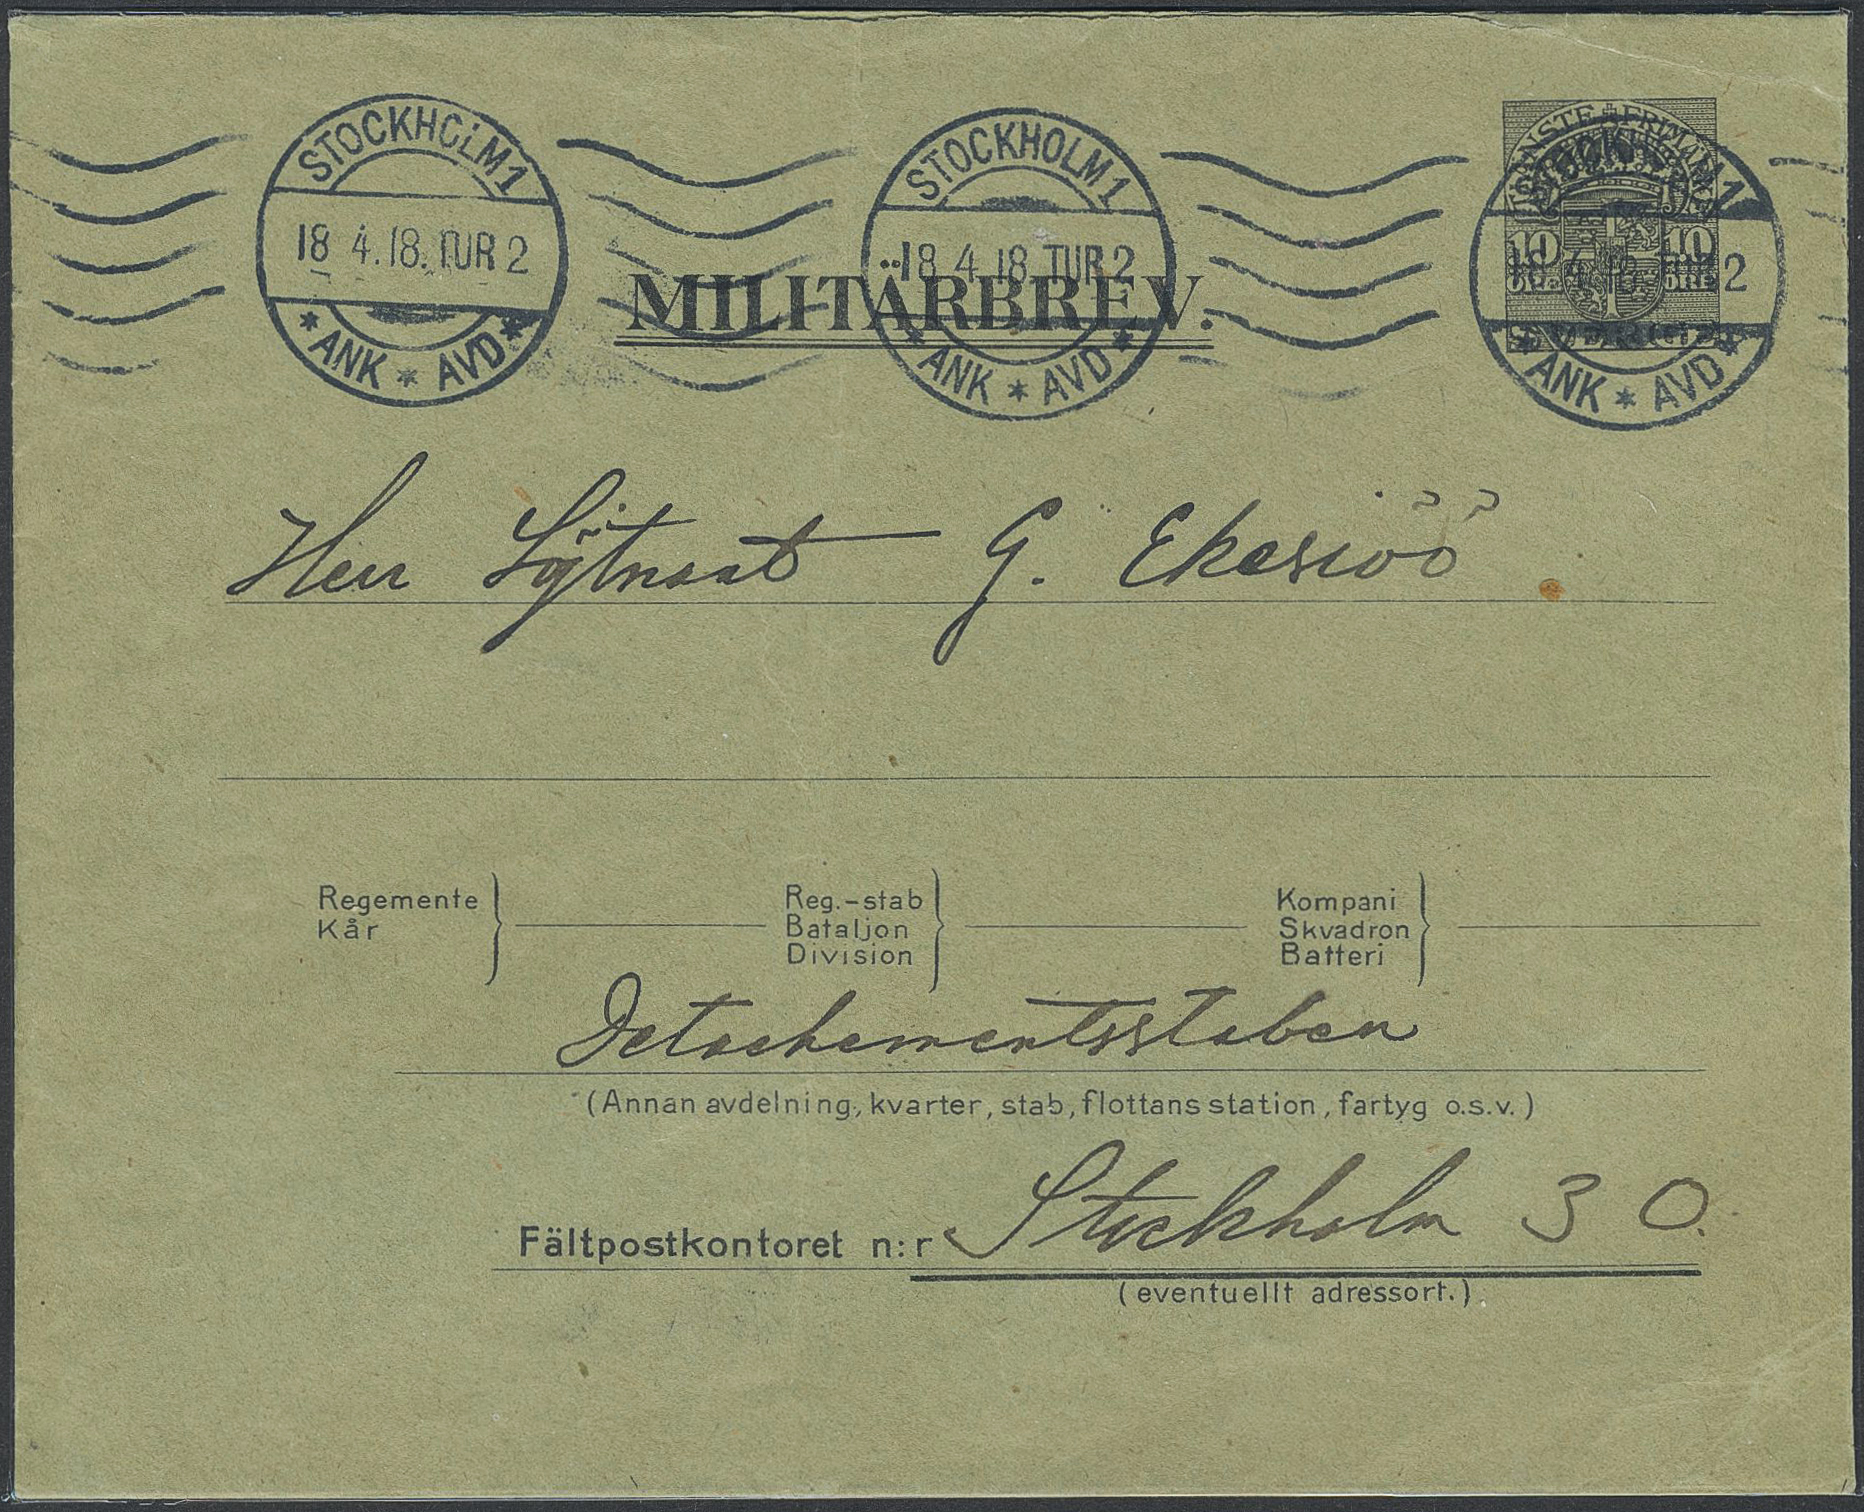 STOCKHOLM 1
18 4.18. TUR 2
* ANK * AVD *
STOCKHOLM 1
18 4 18 TUR 2
* ANK * AVD *
TJÄNSTE FRIMÄRKE
10 10
ÖRE ÖRE
1
2
* ANK * AVD *
MILITÄRBREV.
Herr Löjtnant G. Ekesiöö
Regemente
Kår
Reg.-stab
Bataljon
Division
Kompani
Skvadron
Batteri
Detachementsstaben
(Annan avdelning, kvarter, stab, flottans station, fartyg o.s.v.)
Fältpostkontoret n:r Stockholm 3 O.
(eventuellt adressort.)